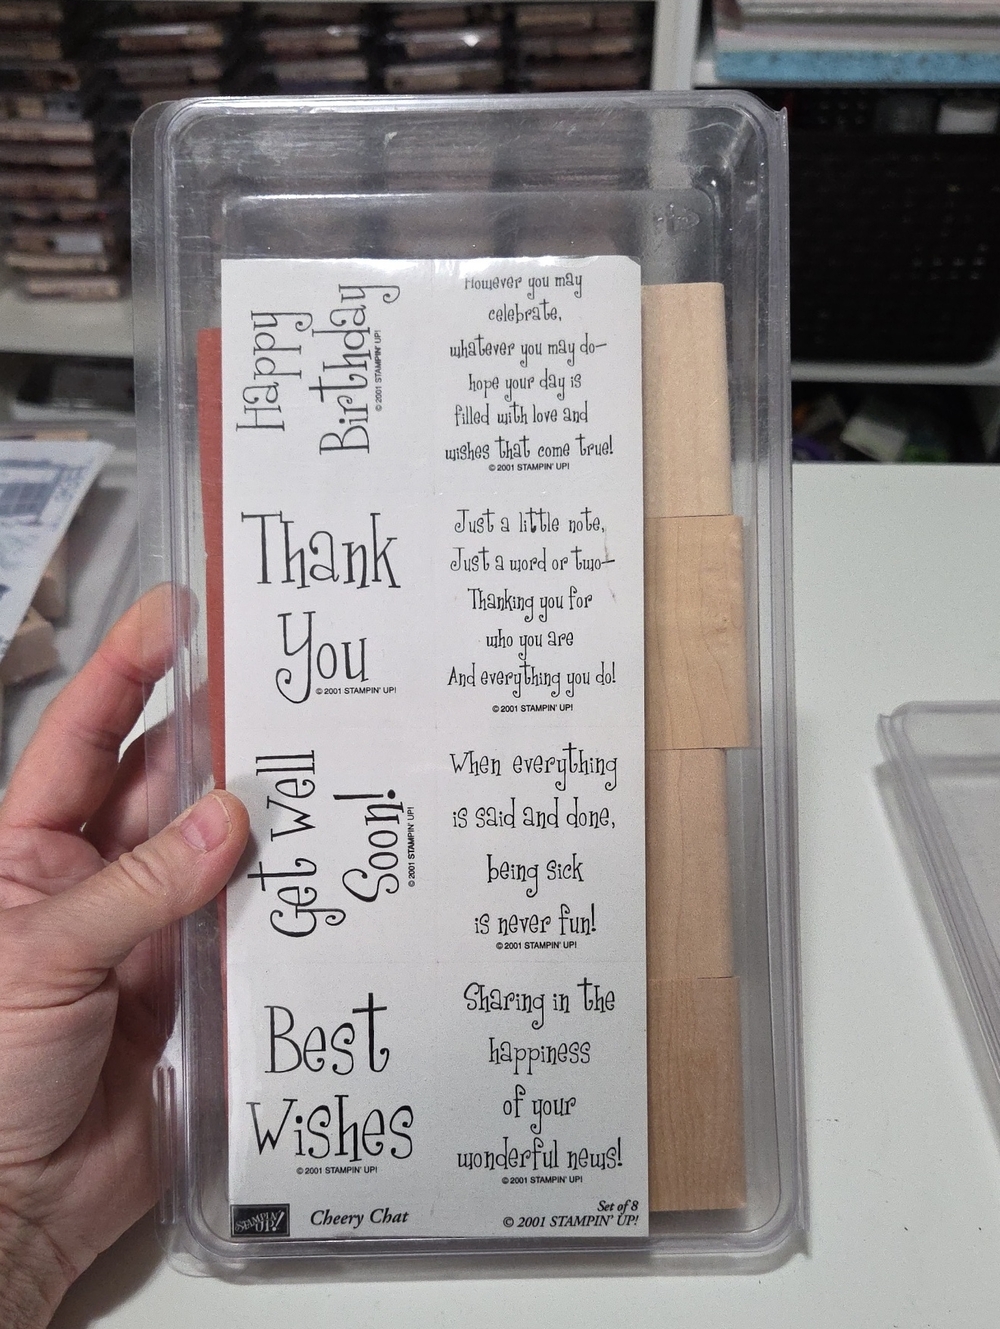 Happy
Birthday
© 2001 STAMPIN' UP!
However you may
celebrate,
whatever you may do—
hope your day is
filled with love and
wishes that come true!
© 2001 STAMPIN' UP!
Thank
You
© 2001 STAMPIN' UP!
Just a little note,
Just a word or two—
Thanking you for
who you are
And everything you do!
© 2001 STAMPIN' UP!
Get Well
Soon!
© 2001 STAMPIN' UP!
When everything
is said and done,
being sick
is never fun!
© 2001 STAMPIN' UP!
Best
Wishes
© 2001 STAMPIN' UP!
Sharing in the
happiness
of your
wonderful news!
© 2001 STAMPIN' UP!
STAMPIN' UP!
Cheery Chat
Set of 8
© 2001 STAMPIN' UP!